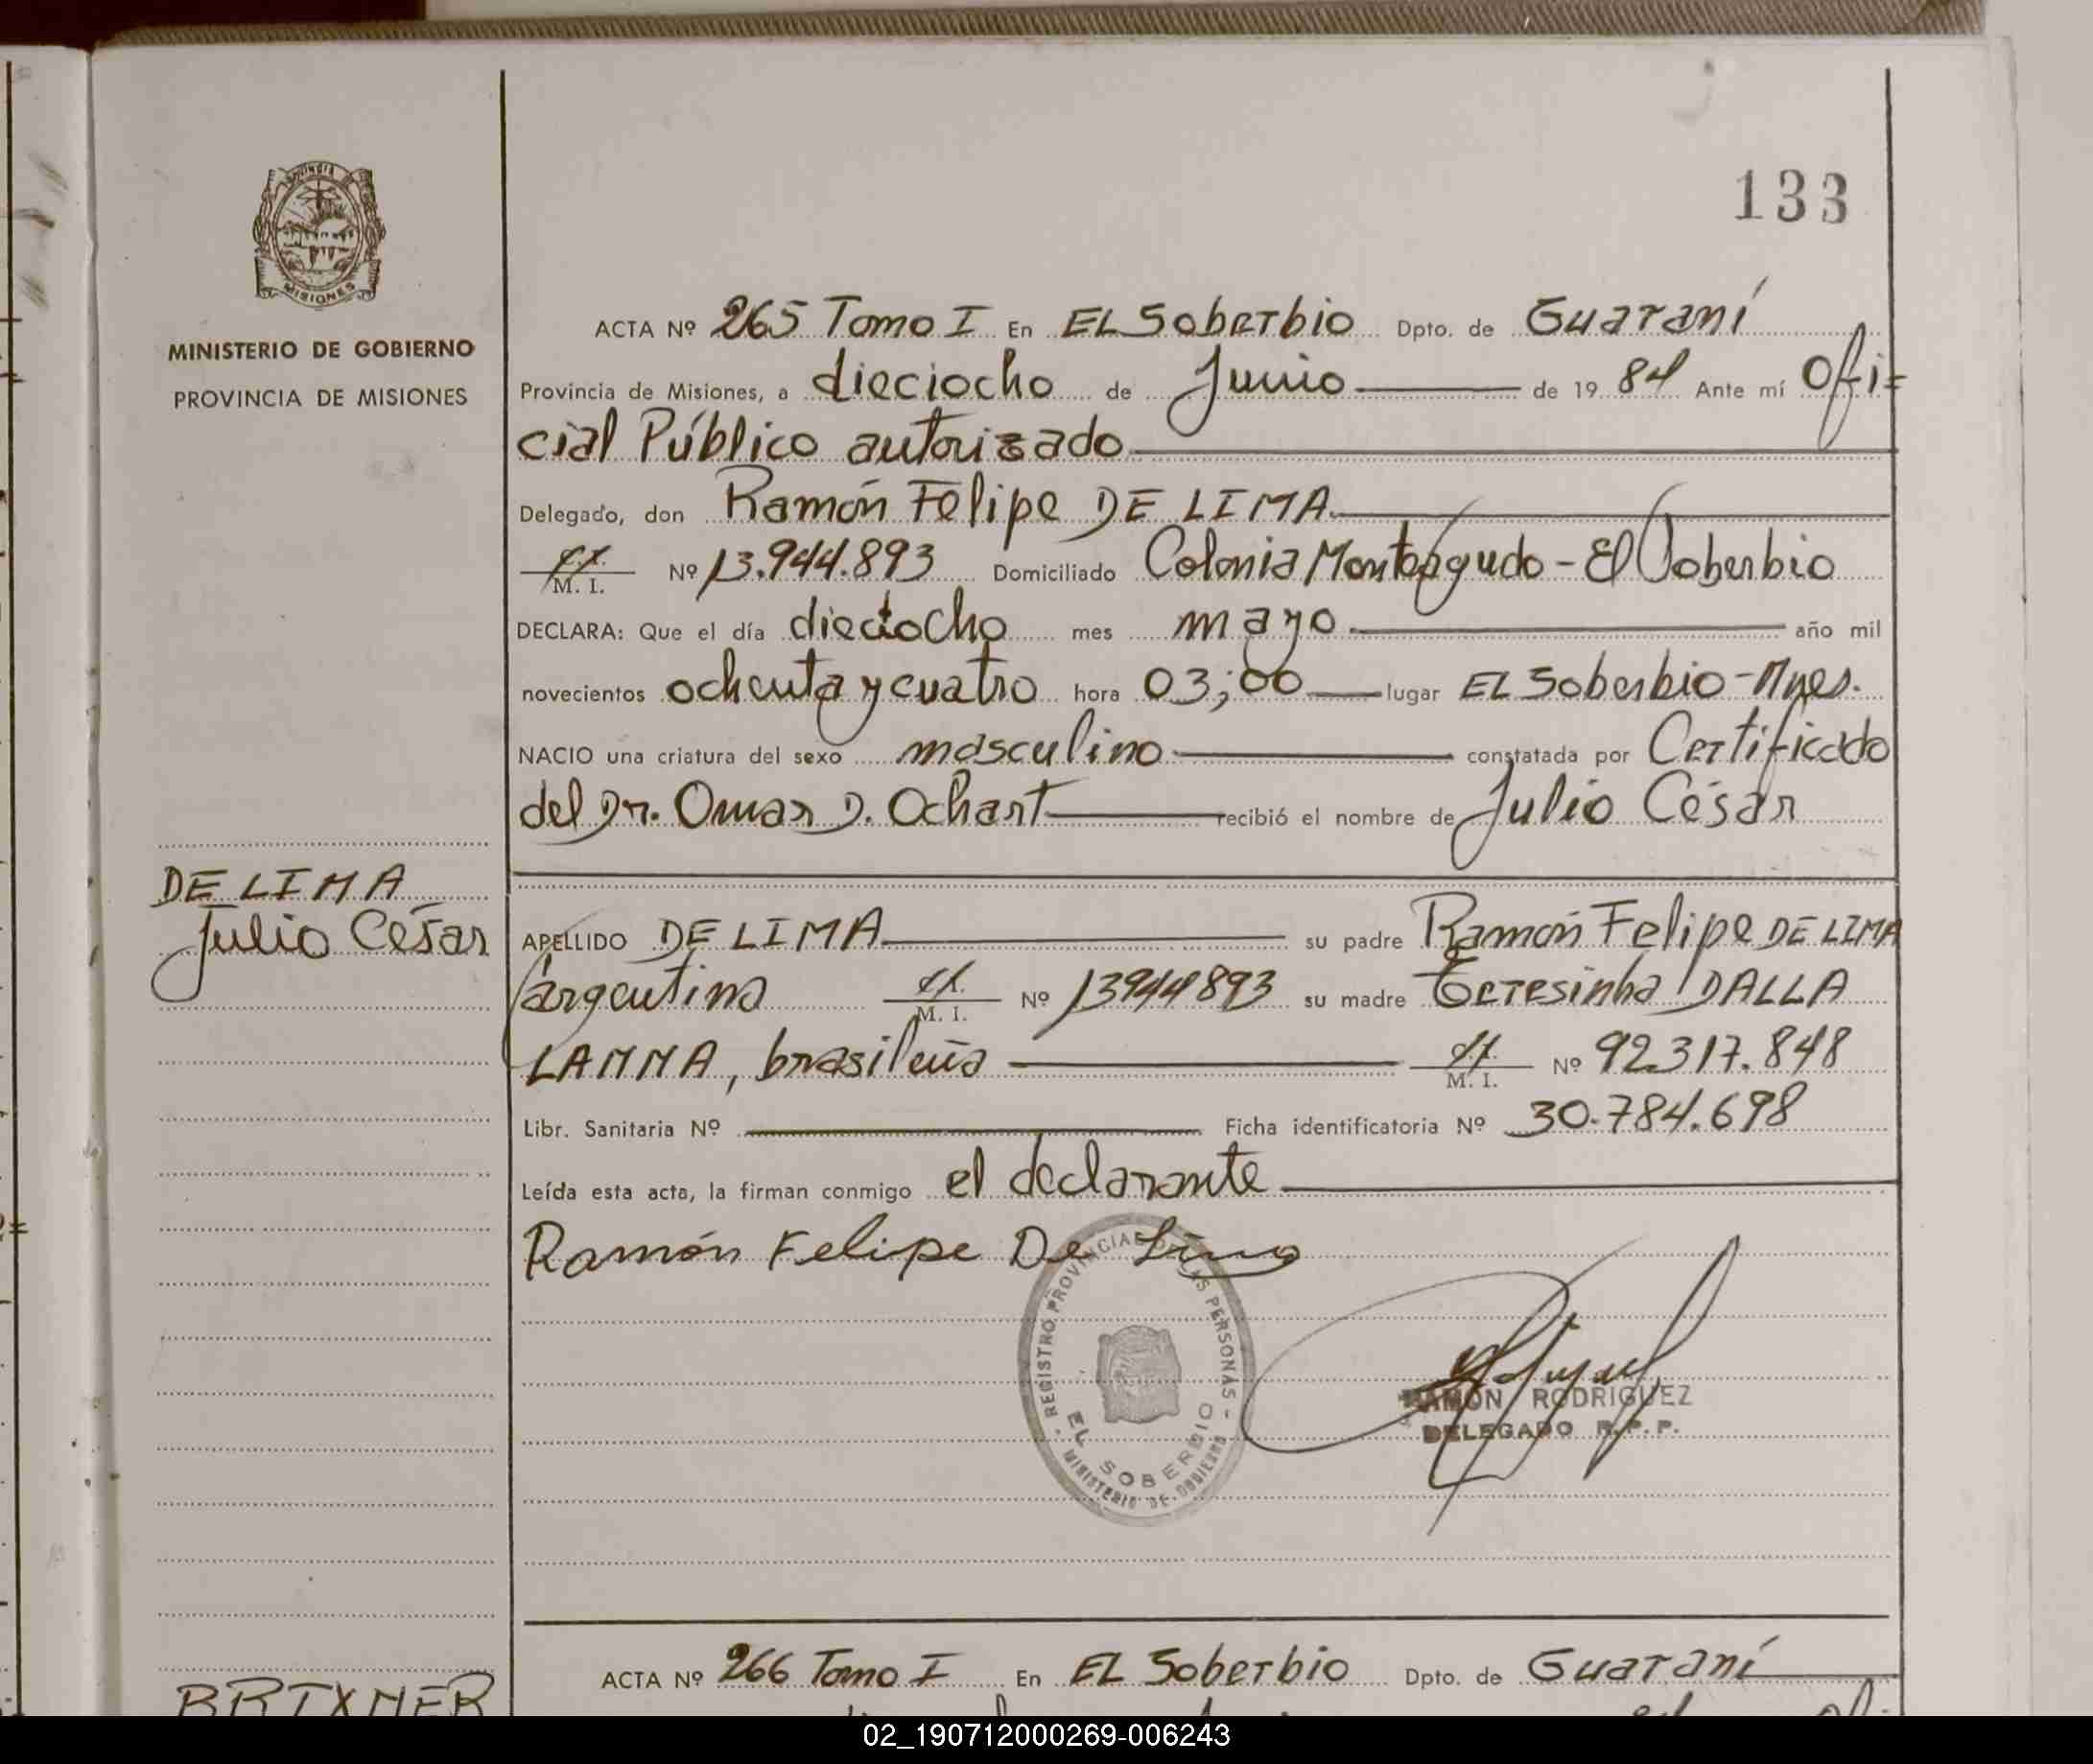 133
MISIONES
MINISTERIO DE GOBIERNO
PROVINCIA DE MISIONES
DE LIMA
Julio César
ACTA Nº 265 Tomo I En EL Soberbio Dpto. de Guaraní
Provincia de Misiones, a dieciocho de Junio de 19 84 Ante mí Ofi=
cial Público autorizado
Delegado, don Ramón Felipe DE LIMA
M. I. Nº 13.944.893 Domiciliado Colonia Monteagudo - El Soberbio
DECLARA: Que el día dieciocho mes mayo año mil
novecientos ochenta y cuatro hora 03;00 lugar EL Soberbio - Mnes.
NACIO una criatura del sexo masculino constatada por Certificado
del Dr. Omar D. Ochart recibió el nombre de Julio César
APELLIDO DE LIMA su padre Ramón Felipe DE LIMA
argentino M. I. Nº 13944893 su madre Teresinha DALLA
LANNA, brasileña M. I. Nº 92.317.848
Libr. Sanitaria Nº Ficha identificatoria Nº 30.784.698
Leída esta acta, la firman conmigo el declarante
Ramón Felipe De Lima
REGISTRO PROVINCIAL DE LAS PERSONAS -
EL SOBERBIO
MINISTERIO DE GOBIERNO
RAMON RODRIGUEZ
DELEGADO R.P.P.
ACTA Nº 266 Tomo I En EL Soberbio Dpto. de Guaraní
02_190712000269-006243